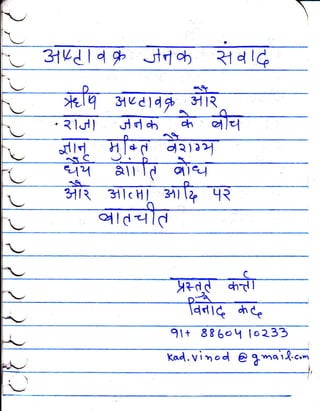 अष्टावक्र जनक संवाद
ऋषि अष्टावक्र और
राजा जनक के बीच
ज्ञान मुक्ति वैराग्य
धैर्य शांति बोध
और आत्मा आदि पर
बातचीत
प्रस्तुत कर्त्ता
विनोद कद
91+ 8860410233
kad.vinod @ gmail.com